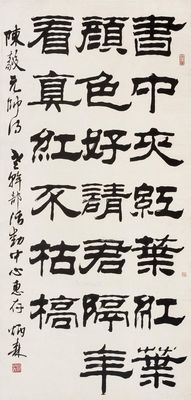 書中夾紅葉紅葉
顏色好請君隔年
看真紅不枯槁
陳毅元帥詩 老幹部活動中心惠存 炳森